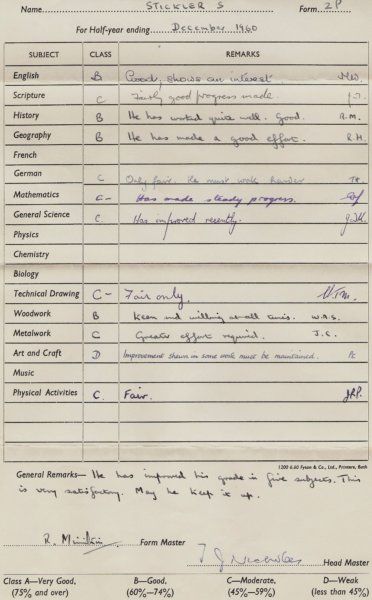 Name STICKLER S Form 2P
For Half-year ending December 1960
SUBJECT CLASS REMARKS
English B Good, shows an interest.
Scripture C Fairly good progress made.
History B He has worked quite well. Good. R.M.
Geography B He has made a good effort. R.M.
French
German C Only fair. He must work harder
Mathematics C- Has made steady progress.
General Science C. Has improved recently.
Physics
Chemistry
Biology
Technical Drawing C- Fair only.
Woodwork B Keen and willing at all times. W.A.S.
Metalwork C Greater effort required. J.C.
Art and Craft D Improvement shewn in some work must be maintained.
Music
Physical Activities C. Fair. JRP.
1200 6.60 Tyson & Co., Ltd., Printers, Bath
General Remarks— He has improved his grade in five subjects. This
is very satisfactory. May he keep it up.
R. Form Master
Head Master
Class A—Very Good, B—Good. C—Moderate, D—Weak
(75% and over) (60%—74%) (45%—59%) (less than 45%)